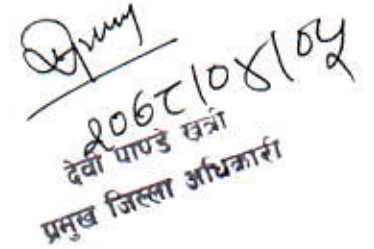 २०६८/०४/०५
देवी पाण्डे खत्री
प्रमुख जिल्ला अधिकारी